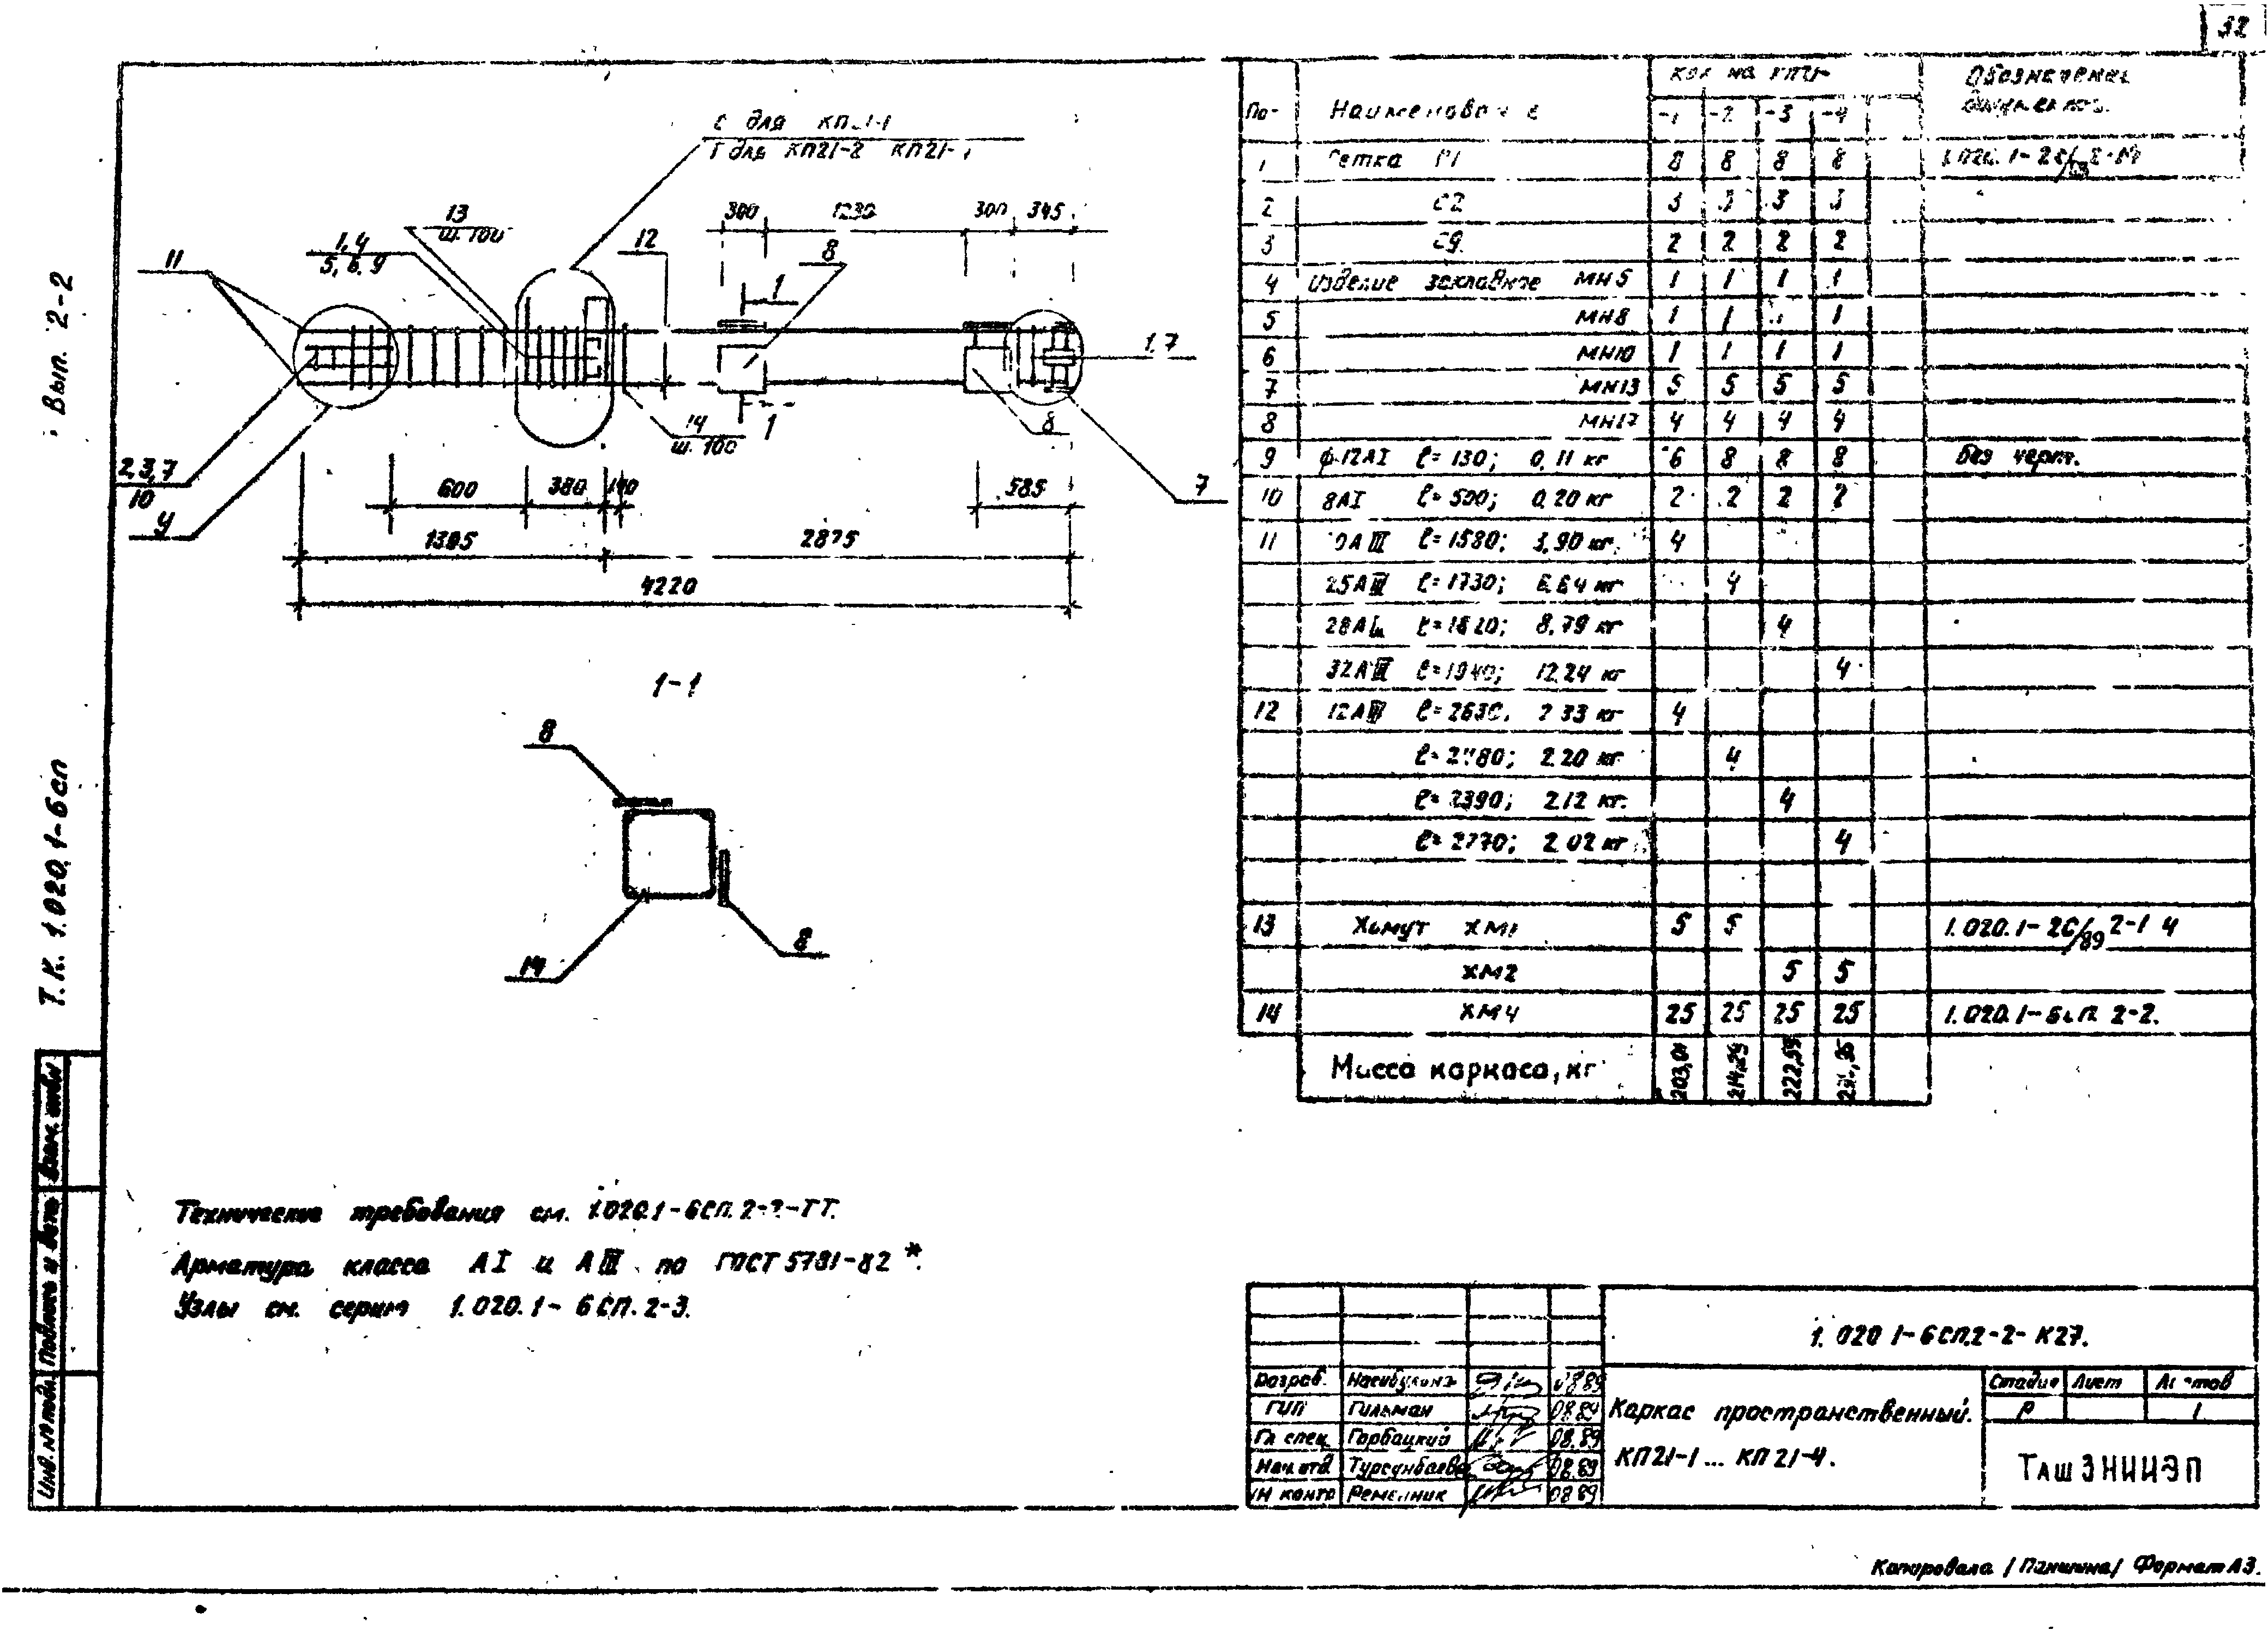 32
Вып. 2-2
Т.К. 1.020.1-6сп
для
для КП21-2 КП21-
13
ш. 100
1,4
5, 6, 9
11
12
300 1230 300 345
8
1
1,7
14
ш. 100
1
8
2,3,7
10
У
7
600 380 140 585
1345 2875
4220
1-1
8
8
14
Кол на КП21- Обозначение
Наименование -1 -2 -3 -4 документов.
1 Сетка С1 8 8 8 8
2 С2 3 3 3 3
3 С9. 2 2 2 2
4 Изделие закладное МН5 1 1 1 1
5 МН8 1 1 1
6 МН10 1 1 1 1
7 МН13 5 5 5 5
8 МН17 4 4 4 4
9 ф12АI ℓ= 130; 0,11 кг 6 8 8 8 без черт.
10 8АI ℓ= 500; 0,20 кг 2 2 2 2
11 ℓ= 1580; 3,90 кг. 4
25АIII ℓ= 1730; 6,64 кг 4
ℓ= 1820; 8,79 кг 4
32АIII ℓ= 1940; 12,24 кг 4
12 12АIII ℓ= 2630. 2 33 кг 4
2 20 кг 4
ℓ= 2390; 2,12 кг. 4
2 02 кг 4
13 Хомут ХМ1 5 5
ХМ2 5 5
14 ХМ4 25 25 25 25 1.020.1-6сп 2-2.
Масса каркаса, кг 203,01 214,29 222,59
Технические требования см. 1.020.1-6СП. 2-2-ТТ.
Арматура класса АI и АIII по ГОСТ 5781-82*.
Узлы см. серии 1.020.1- 6СП. 2-3.
Взам. инв№
Подпись и дата
Инв. № подл.
1. 020 1-6СП.2-2- К27.
Разраб. 08 89
ГИП Гильман 08.89
Гл спец Горбацкий 08.89
Нач. отд Турсунбаева 08.89
Н контр 08 89
Каркас пространственный.
КП21-1 ... КП 21-4.
Стадия Лист Листов
Р 1
ТашЗНИИЭП
Копировала /Паншина/ Формат А3.